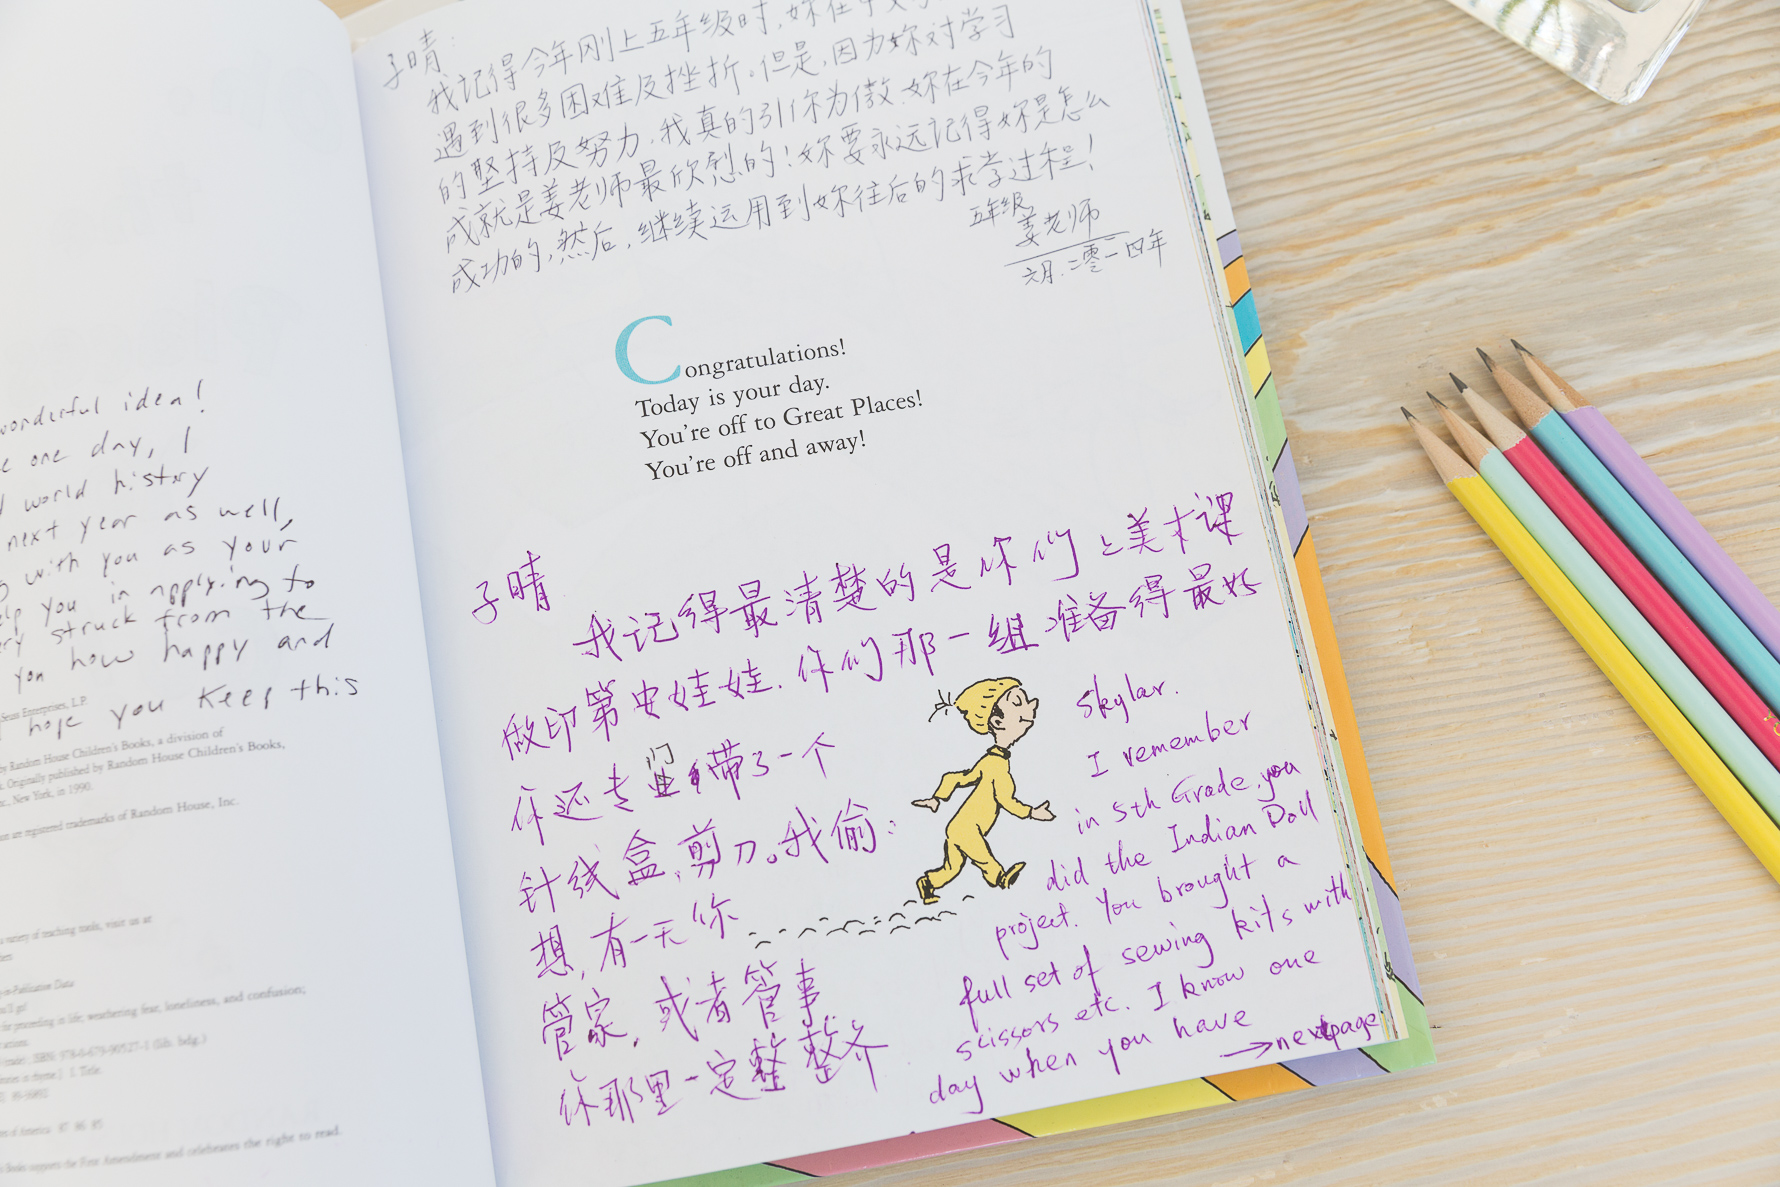 wonderful idea!
one day, I
world history
next year as well,
with you as your
you in applying to
struck from the
you how happy and
hope you keep this
Enterprises, L.P.
by Random House Children's Books, a division of
Originally published by Random House Children's Books,
New York, in 1990.
are registered trademarks of Random House, Inc.
variety of teaching tools, visit us at
for proceeding in life; weathering fear, loneliness, and confusion;
Title.
of America
Books supports the First Amendment and celebrates the right to read.
子晴:
我记得今年刚上五年级时,妳在中文
遇到很多困难及挫折。但是,因为妳对学习
的坚持及努力,我真的引你为傲.妳在今年的
成就是姜老师最欣慰的!妳要永远记得妳是怎么
成功的,然后,继续运用到妳往后的求学过程!
五年级
姜老师
六月.二零一四年
Congratulations!
Today is your day.
You're off to Great Places!
You're off and away!
子晴
我记得最清楚的是你们上美术课
做印第安娃娃.你们那一组准备得最好
你还专门带了一个
针线盒,剪刀。我偷:
想,有一天你
管家,或者管事
你那里一定整整齐
Skylar.
I remember
in 5th Grade, you
did the Indian Doll
project. You brought a
full set of sewing kits with
scissors etc. I know one
day when you have
→next page